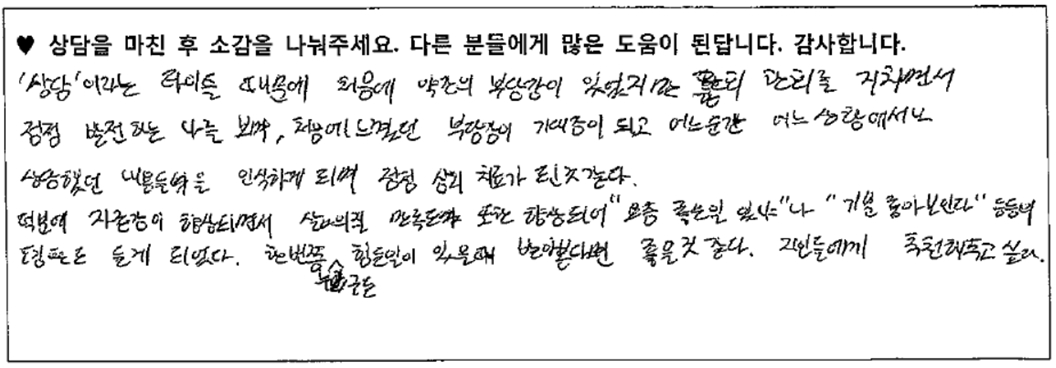 ♥ 상담을 마친 후 소감을 나눠주세요. 다른 분들에게 많은 도움이 된답니다. 감사합니다.
'상담'이라는 타이틀 때문에 처음에 약간의 부담감이 있었지만 한회 한회를 지치면서
점점 발전하는 나를 보며, 처음에 느꼈던 부담감이 기대감이 되고 어느순간 어느 상황에서나
상담했던 내용들을 인식하게 되며 점점 삶의 치료가 된것 같다.
덕분에 자존감이 향상되면서 삶의 질 만족도 또한 향상되어 "요즘 좋은일 있냐"나 "기분 좋아보인다" 등등의
평판도 듣게 되었다. 한번쯤 힘든일이 있을때 받아본다면 좋을것 같다. 지인들에게 추천해주고 싶다.